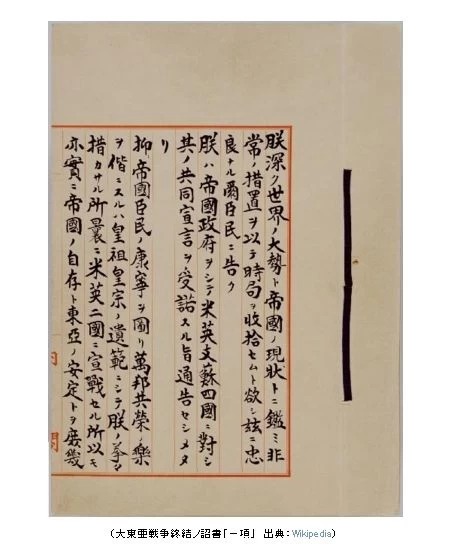 朕深ク世界ノ大勢ト帝國ノ現状トニ鑑ミ非
常ノ措置ヲ以テ時局ヲ收拾セムト欲シ茲ニ忠
良ナル爾臣民ニ告ク
朕ハ帝國政府ヲシテ米英支蘇四國ニ對シ
其ノ共同宣言ヲ受諾スル旨通告セシメタ
リ
抑帝國臣民ノ康寧ヲ圖リ萬邦共榮ノ樂
ヲ偕ニスルハ皇祖皇宗ノ遺範ニシテ朕ノ拳々
措カサル所曩ニ米英二國ニ宣戰セル所以モ
亦實ニ帝國ノ自存ト東亞ノ安定トヲ庶幾
内 閣
(大東亜戦争終結ノ詔書「一項」 出典: Wikipedia)